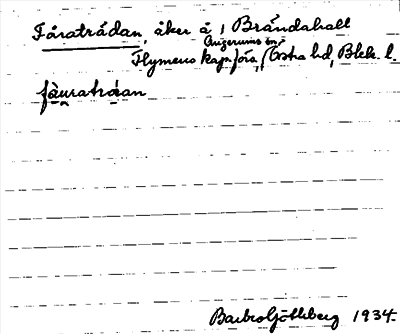 Fåraträdan, åker å 1 Brändahall
Augerums sn,
Flymens kapn förs, Östra hd, Blek. l.
fåuratráan
Barbro Göthberg 1934.